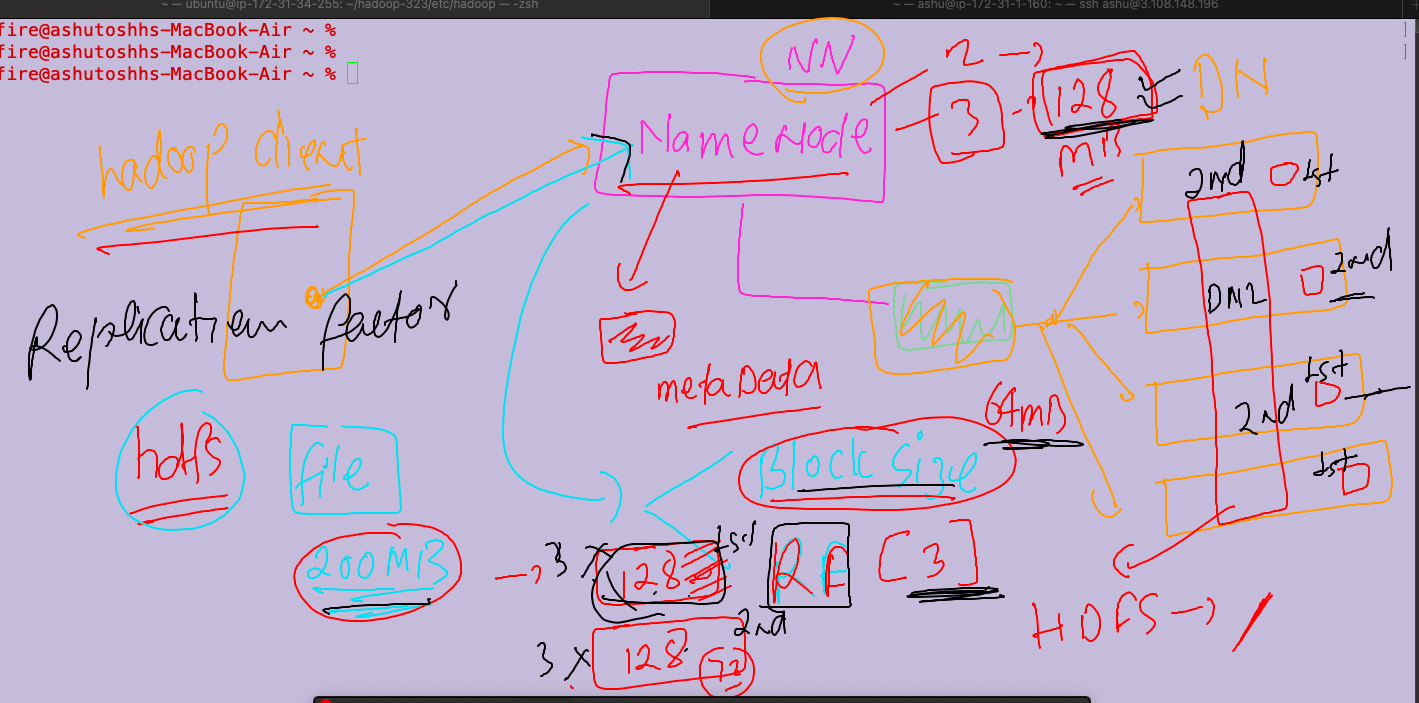 ~ — ubuntu@ip-172-31-34-255: ~/hadoop-323/etc/hadoop — -zsh
~ — ashu@ip-172-31-1-160: ~ — ssh ashu@3.108.148.196
fire@ashutoshhs-MacBook-Air ~ %
fire@ashutoshhs-MacBook-Air ~ %
fire@ashutoshhs-MacBook-Air ~ %
NN
2
3
128
MB
DN
hadoop client
NameNode
2nd
1st
2nd
DN2
Replication factor
metaData
1st
2nd
64MB
hdfs
file
Block Size
1st
200MB
3 X
128
1st
RF
3
2nd
3 X
128
72
HDFS